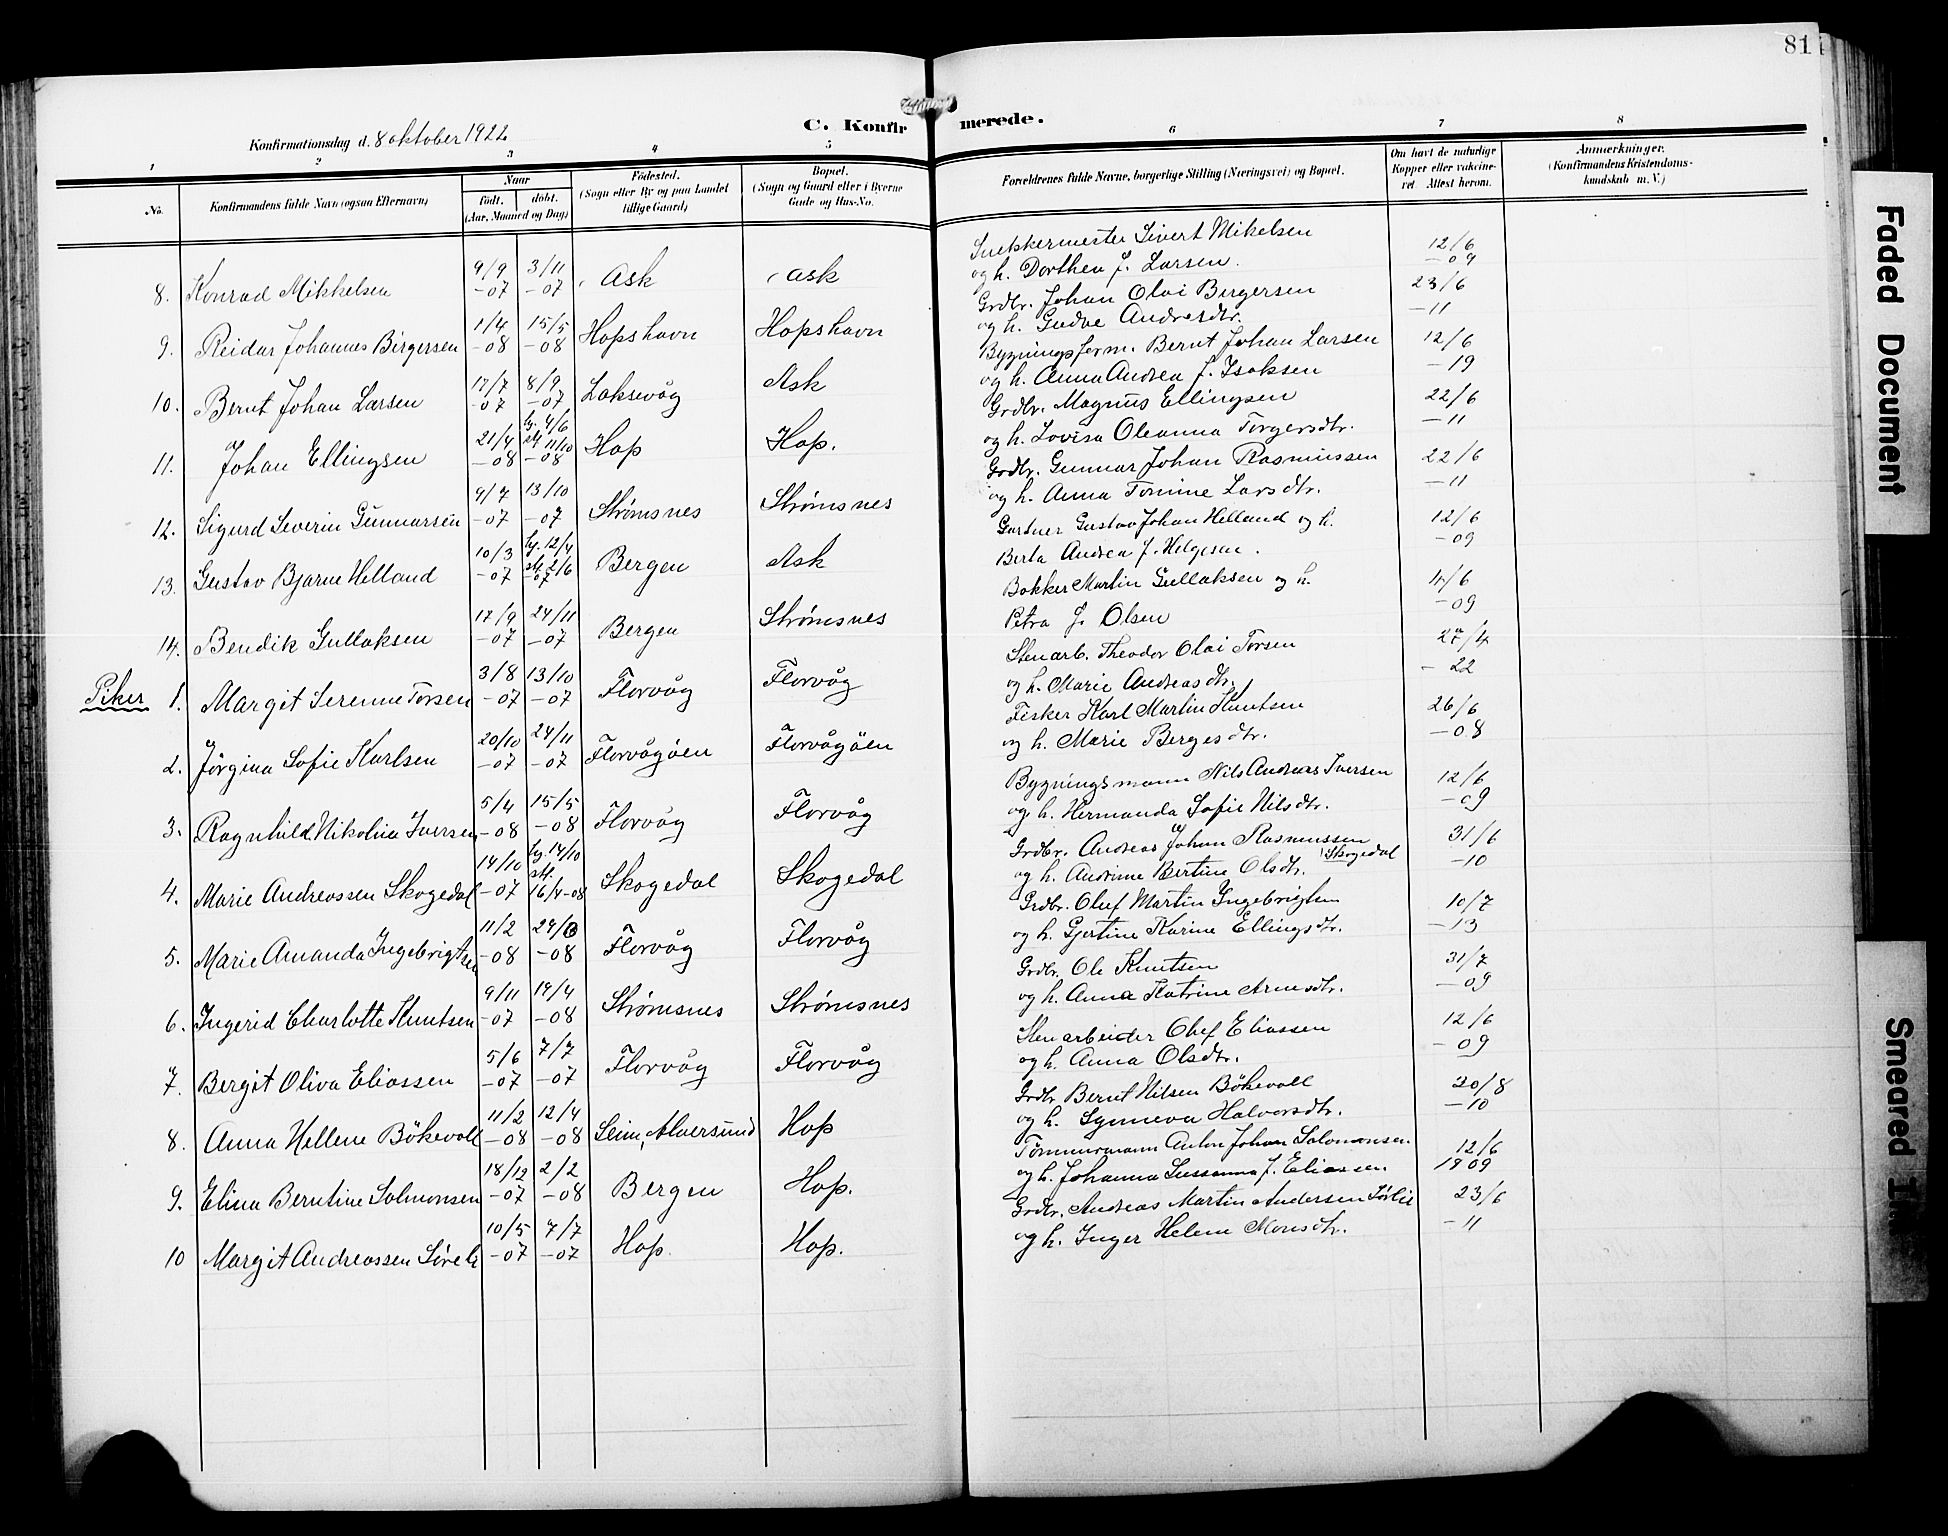 81
C. Konfirmerede.
Konfirmationsdag d. 8 oktober 1922
1 2 3 4 5 6 7 8
No.
Konfirmandens fulde Navn (ogsaa Efternavn)
Naar
født. døbt.
(Aar, Maaned og Dag)
Fødested.
(Sogn eller By og paa Landet
tillige Gaard)
Bopæl.
(Sogn og Gaard eller i Byerne
Gade og Hus-No.
Forældrenes fulde Navne, borgerlige Stilling (Næringsvei) og Bopæl.
Om havt de naturlige
Kopper eller vakcine-
ret Attest herom.
Anmærkninger.
(Konfirmandens Kristendoms-
kundskab m. V.)
8. Konrad Mikkelsen 9/9 -07 3/11 -07 Ask Ask
Snekkermester Sivert Mikelsen 12/6
og h. Dorthea f. Larsen. -09
9. Reidar Johannes Birgersen 1/4 -08 15/5 -08 Hopshavn Hopshavn
Grdbr. Johan Olai Birgersen 23/6
og h. Gudve Andresdtr. -11
10. Bernt Johan Larsen 17/7 -07 8/9 -07 Laksevåg Ask
Bygningsform. Bernt Johan Larsen 12/6
og h. Anna Andrea f. Isaksen -19
11. Johan Ellingsen 21/4 -08 hj. 4/6 st. 11/10 -08 Hop Hop.
Grdbr. Magnus Ellingsen 22/6
og h. Lovisa Oleanna Torgersdtr. -11
12. Sigurd Severin Gunnarsen 9/7 -07 13/10 -07 Strømsnes Strømsnes
Grdbr. Gunnar Johan Rasmussen 22/6
og h. Anna Tomine Larsdtr. -11
13. Gustav Bjarne Helland 10/3 -07 hj. 12/4 st. 2/6 -07 Bergen Ask
Gartner Gustav Johan Helland og h. 12/6
Berta Andrea f. Helgesen. -09
14. Bendik Gullaksen 17/9 -07 24/11 -07 Bergen Strømsnes
Bøkker Martin Gullaksen og h. /6
Petra f. Olsen -09
Piker 1. Margit Serenne Torsen 3/8 -07 13/10 -07 Florvåg Florvåg
Stenarb. Theodor Olai Torsen 27/4
og h. Marie Andreasdtr. -22
2. Jörgina Sofie Karlsen 20/10 -07 24/11 -07 Florvågöen Florvågöen
Fisker Karl Martin Knutsen 26/6
og h. Marie Bergesdtr. -08
3. Ragnhild Nikolina Iversen 5/4 -08 15/5 -08 Florvåg Florvåg
Bygningsmann Nils Andreas Iversen 12/6
og h. Hermanda Sofie Nilsdtr. -09
4. Marie Andreassen Skogedal 14/10 -07 hj. 14/10 st. 16/4-08 Skogedal Skogedal
Grdbr. Andreas Johan Rasmussen 31/6
og h. Andrine Bertine Olsdtr. Skogedal -10
5. Marie Amanda Ingebrigtsen 11/2 -08 -08 Florvåg Florvåg
Grdbr. Oluf Martin Ingebrigtsen 10/7
og h. Gjertine Karine Ellingsdtr. -13
6. Ingerid Charlotte Knutsen 9/11 -07 19/4 -08 Strømsnes Strømsnes
Grdbr. Ole Knutsen 31/7
og h. Anna Katrine Arnesdtr. -09
7. Bergit Oliva Eliassen 5/6 -07 7/7 -07 Florvåg Florvåg
Stenarbeider Olef Eliassen 12/6
og h. Anna Olsdtr. -09
8. Anna Hellene Bökevoll 11/2 -08 12/4 -08 Seim, Alversund Hop
Grdbr Bernt Nilsen Bökevoll 20/8
og h. Synneva Halvorsdtr. -10
9. Elina Berntine Solmonsen 18/12 -07 2/2 -08 Bergen Hop.
Tömmermann Anton Johan Salomonsen 12/6
og h. Johanna Sussanna f. Eliassen 1909
10 Margit Andreassen Sörli 10/5 -07 7/7 -07 Hop. Hop.
Grdbr. Andreas Martin Andersen Sörlie 23/6
og h. Inger Helene Monsdtr. -11
Faded Document
Smeared